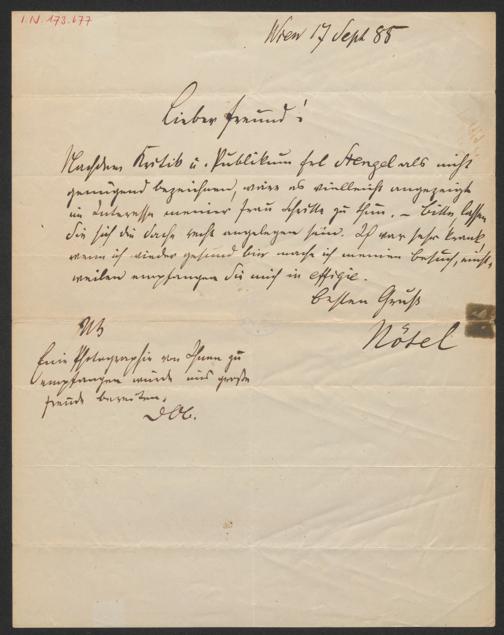 I.N. 173.677
Wien 17 Sept 85
Lieber Freund!
Nachdem Kritik u. Publikum Frl Stengel als nicht
genügend bezeichnen, wäre es vielleicht angezeigt
im Interesse meiner Frau Schritte zu thun. – Bitte lassen
Sie sich die Sache recht angelegen sein. Ich war sehr krank,
wenn ich wieder gesund bin mache ich meinen Besuch, einst-
weilen empfangen Sie mich in effigie.
Besten Gruß
Nötel
NB
Eine Photographie von Ihnen zu
empfangen würde uns große
Freude bereiten.